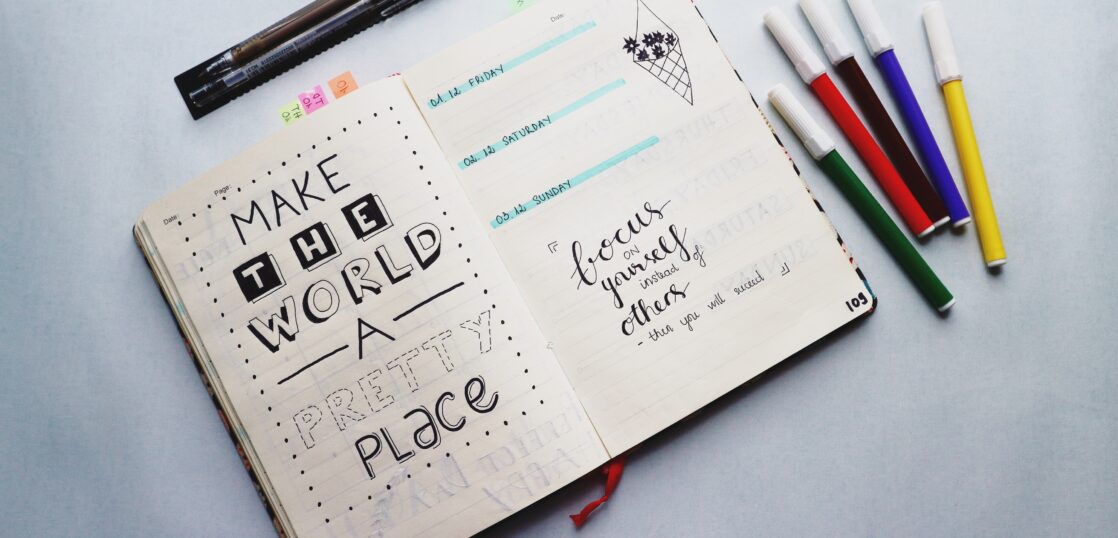 Date:
Page:
MAKE
THE
WORLD
A
PRETTY
PLACE
Date:
01. 12 FRIDAY
02. 12 SATURDAY
03. 12 SUNDAY
focus
ON
yourself
instead of
others
- then you will succeed
109